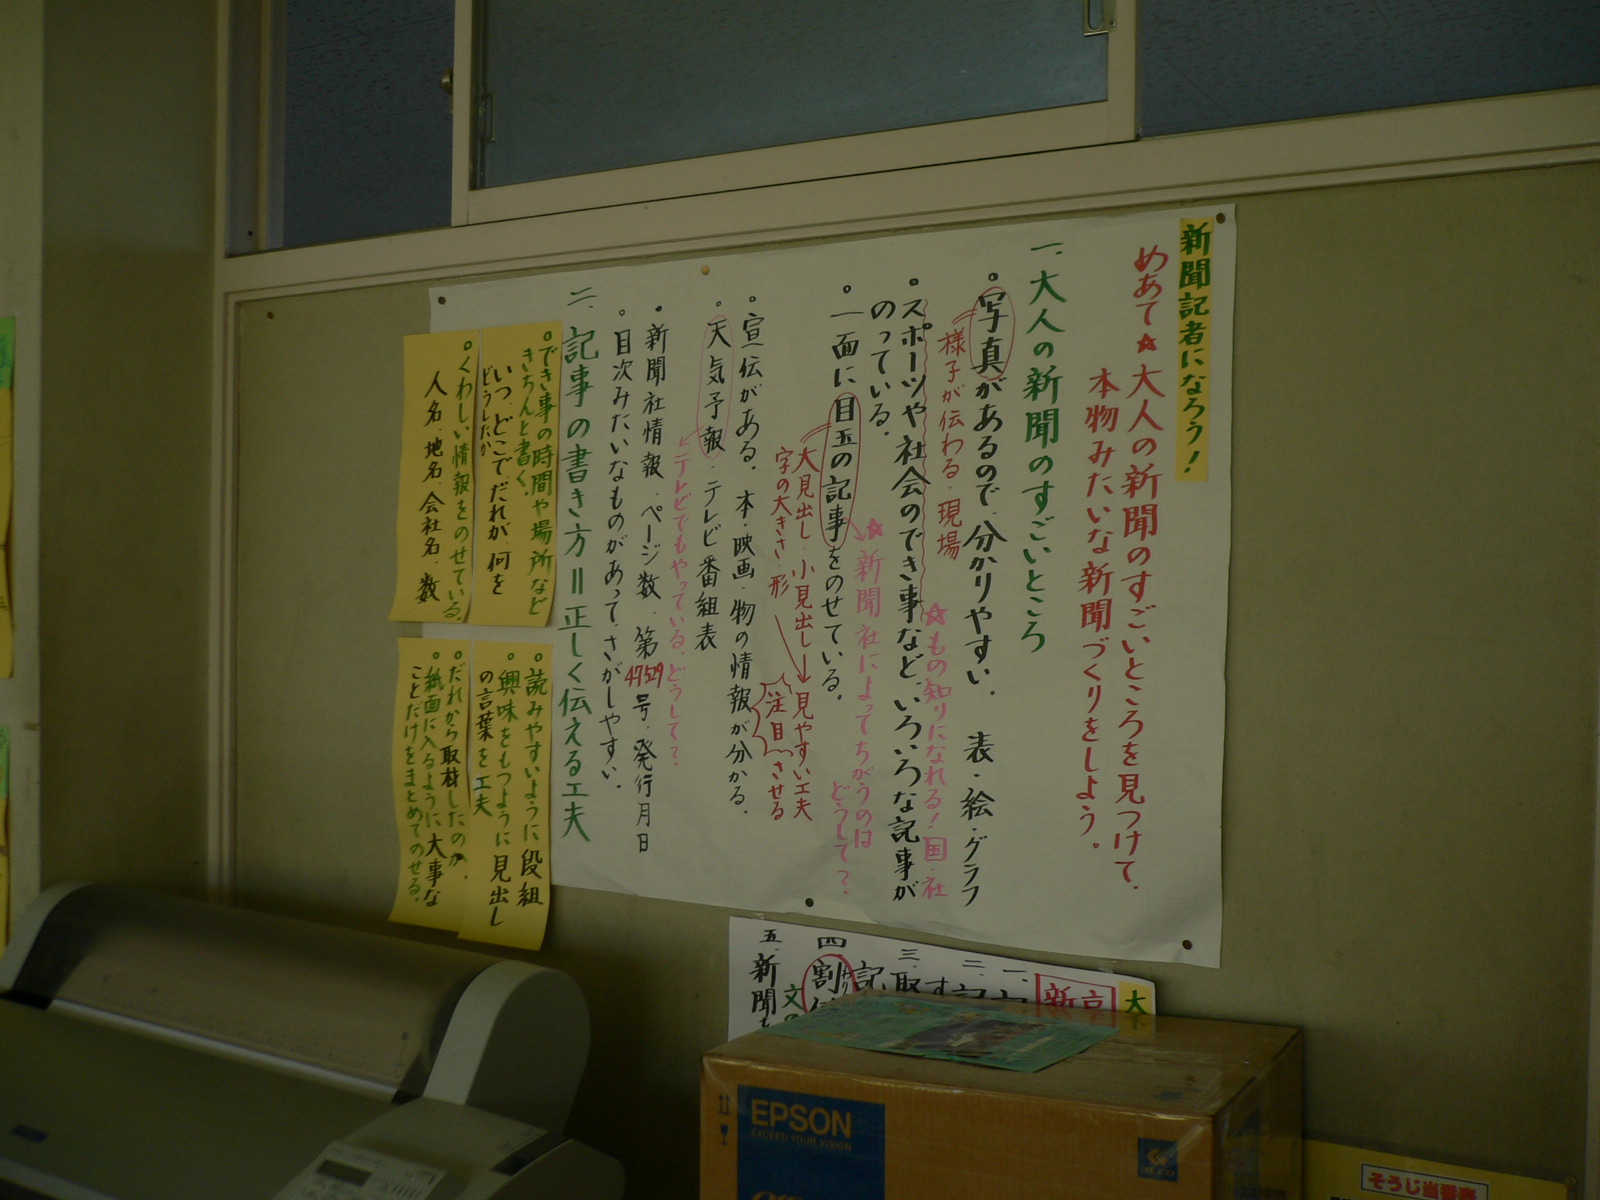 新聞記者になろう!
めあて★大人の新聞のすごいところを見つけて、
本物みたいな新聞づくりをしよう。
一、大人の新聞のすごいところ
・写真があるので、分かりやすい。 表・絵・グラフ
様子が伝わる、現場
☆もの知りになれる!国、社
・スポーツや社会のできごと事など、いろいろな記事が
のっている。
☆新聞社によってちがうのは
どうして?
・一面に目玉の記事をのせている。
大見出し・小見出し→見やすい工夫
字の大きさ・形
注目させる
・宣伝がある。本・映画・物の情報が分かる。
・天気予報、テレビ番組表
テレビでもやっている。どうして?
・新聞社情報、ページ数、第47529号、発行月日
・目次みたいなものがあって、さがしやすい。
二、記事の書き方=正しく伝える工夫
・できごと事の時間や場所など
きちんと書く。
いつ、どこでだれが、何を
どうしたか
・くわしい情報をのせている。
人名、地名、会社名、数
・読みやすいように段組
・興味をもつように見出し
の言葉を工夫
・だれから取材したのか。
・紙面に入るように、大事な
ことだけをまとめてのせる。
大
新
一、
二、記
三、取
記
四、割
文
五、新聞を
EPSON
EXCEED YOUR VISION
そうじ当番表